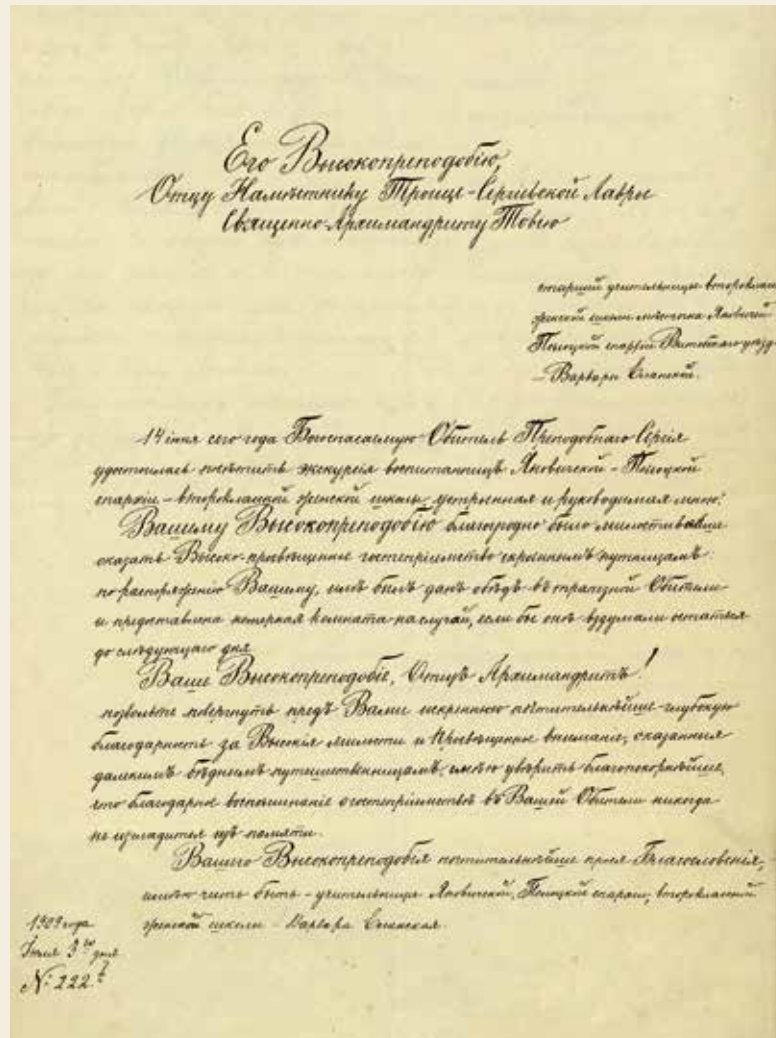 Его Высокопреподобію,
Отцу Намѣстнику Троице-Сергіевской Лавры
Священно-Архимандриту Товію
старшей учительницы второклас
женской школы мѣстечка Яновичей
Полоцкой епархіи Витебскаго уѣзд
– Варвары
14 іюня сего года Богоспасаемую Обитель Преподобнаго Сергія
удостоилась посѣтить экскурсія воспитанницъ Яновичской – Полоцкой
епархіи – второклассной женской школы, устроенная и руководимая мною.
Вашему Высокопреподобію благоугодно было милостивѣйше
оказать Высоко-просвѣщенное гостепріимство скромнымъ путницамъ:
по распоряженію Вашему, имъ былъ данъ обѣдъ въ трапезной Обители
и предоставлена номерная комната на случай, если бы онѣ вздумали остаться
до слѣдующаго дня
Ваше Высокопреподобіе, Отецъ Архимандритъ!
позвольте повергнуть предъ Вами искреннюю почтительнѣйше-глубокую
благодарность за Высокія милости и Просвѣщенное вниманіе, оказанныя
далекимъ бѣднымъ путешественницамъ; смѣю увѣрить благопокорнѣйше,
что благодарное воспоминаніе о гостепріимствѣ въ Вашей Обители никогда
не изгладится изъ памяти.
Вашего Высокопреподобія почтительнѣйше прося Благословенія, –
имѣю честь быть – учительница Яновичской, Полоцкой епархіи, второклассной
женской школы – Варвара
1909 года
3го дня
№ 222.